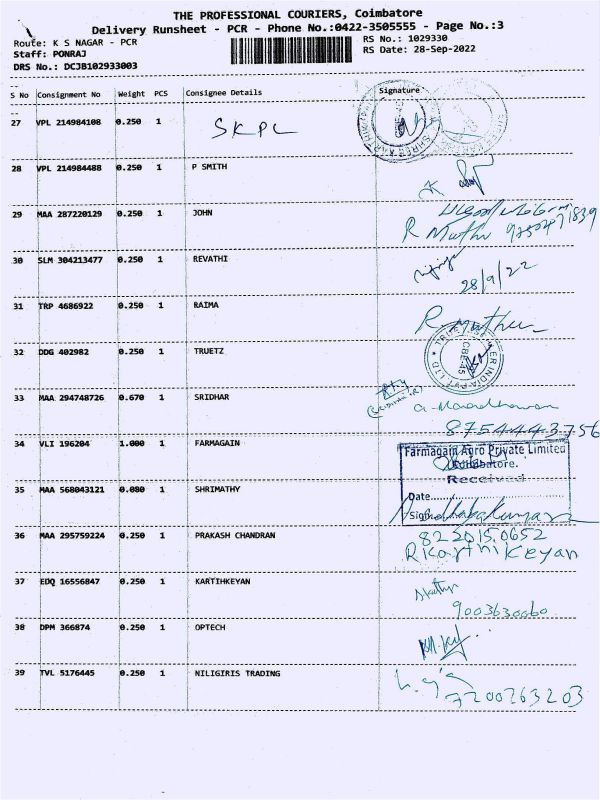 THE PROFESSIONAL COURIERS, Coimbatore
Delivery Runsheet - PCR - Phone No.:0422-3505555 - Page No.:3
Route: K S NAGAR - PCR
RS No.: 1029330
Staff: PONRAJ
RS Date: 28-Sep-2022
DRS No.: DCJB102933003
S No Consignment No Weight PCS Consignee Details Signature
27 VPL 214984108 0.250 1 SKPC
28 VPL 214984488 0.250 1 P SMITH
29 MAA 287220129 0.250 1 JOHN
R Muthu
30 SLM 304213477 0.250 1 REVATHI
28/9/22
31 TRP 4686922 0.250 1 RAIMA
R. Muthu
32 DDG 402982 0.250 1 TRUETZ
33 MAA 294748726 0.670 1 SRIDHAR
8754443756
34 VLI 196204 1.000 1 FARMAGAIN
Farmagain Agro Private Limited
Coimbatore.
Received
35 MAA 568043121 0.080 1 SHRIMATHY
Date
Sign
36 MAA 295759224 0.250 1 PRAKASH CHANDRAN
8220150652
R Karthikeyan
37 EDQ 16556847 0.250 1 KARTIHKEYAN
9003630060
38 DPM 366874 0.250 1 OPTECH
39 TVL 5176445 0.250 1 NILIGIRIS TRADING
7200263203